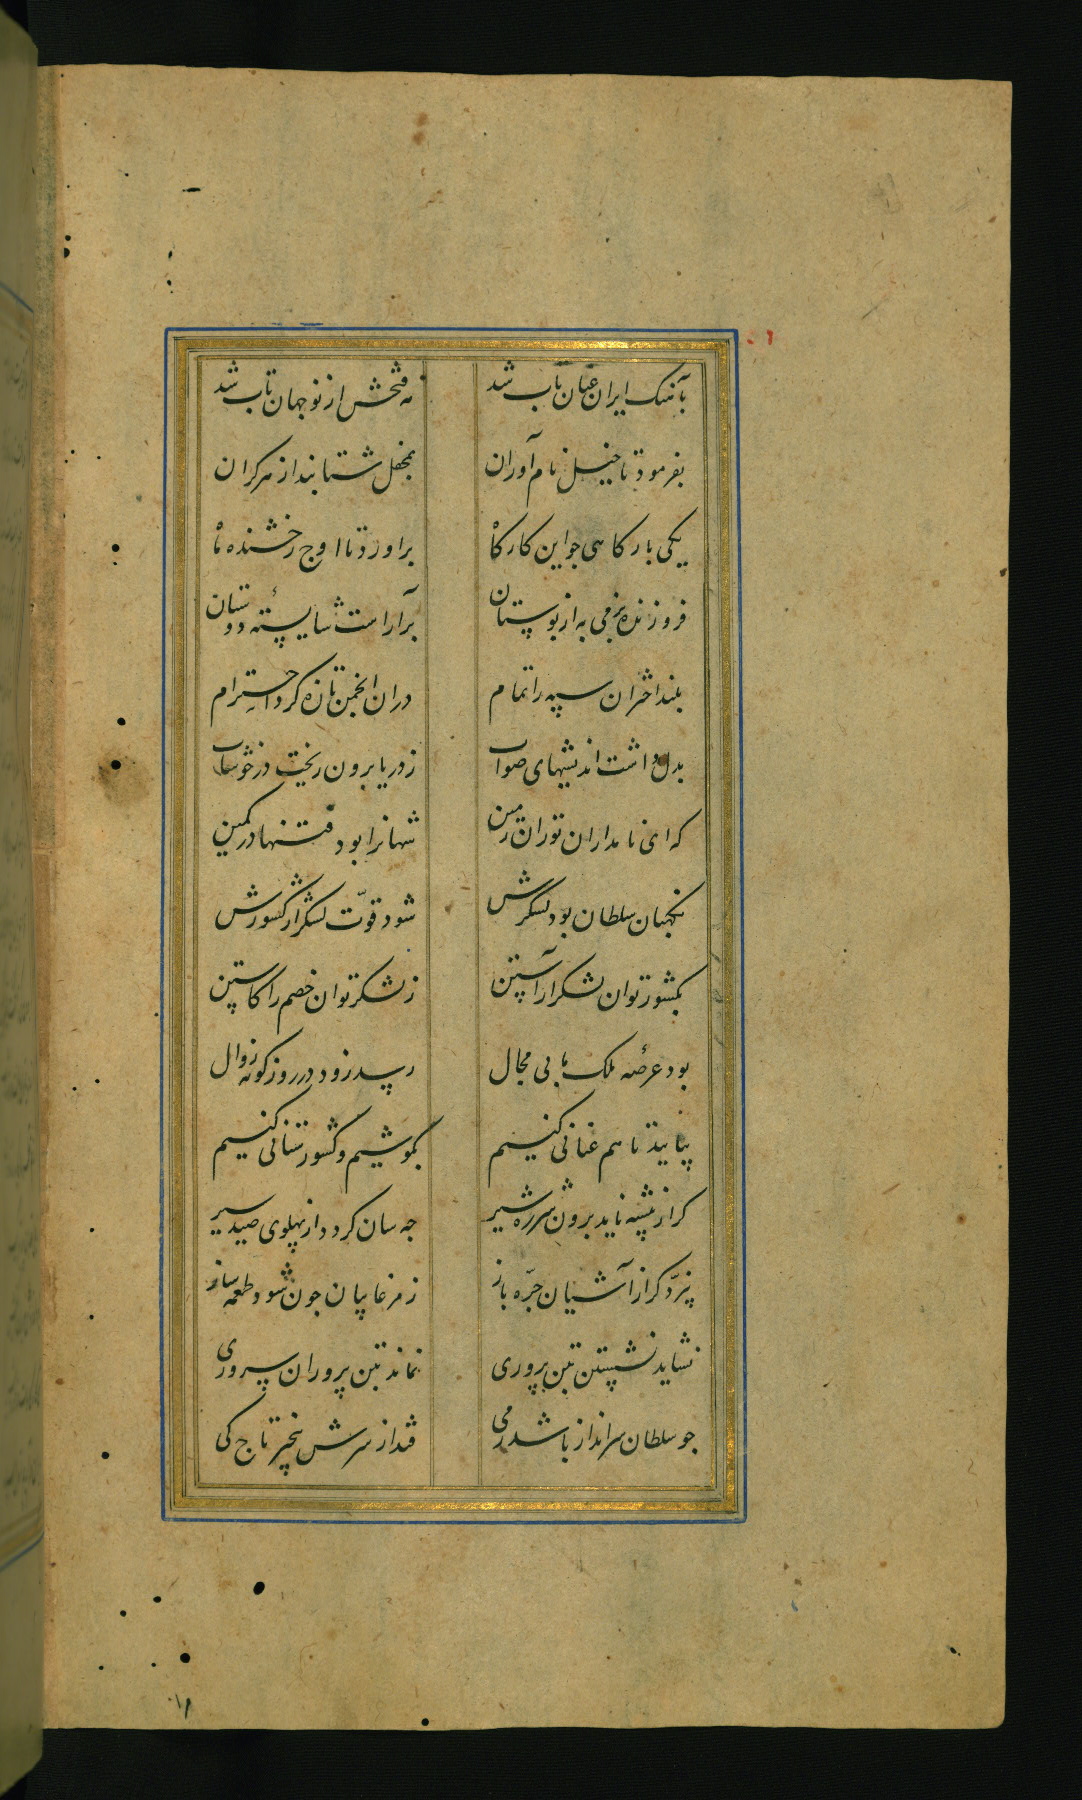 بآهنک ایران عنان تاب شد مه فتحش از نو جهان تاب شد
بفرمود تا خیل نام آوران بمحفل شتابند از هر کران
یکی بارکاهی جو این کارکاه براورد تا اوج رخشنده ماه
فروزنده بزمی به از بوستان برآراست شایسته دوستان
بلند اختران سپه را تمام دران انجمن تازه کرد احترام
بدل داشت اندیشهای صواب ز دریا برون ریخت در خوشاب
که ای نامداران توران زمین شهانرا بود فتنها در کمین
نکهبان سلطان بود لشکرش شود قوت لشکر از کشورش
بکشور توان لشکر آراستن ز لشکر توان خصم را کاستن
بود عرصه ملک ما بی مجال رسد زود در روز کوته زوال
بیایید تا هم عنانی کنیم بکوشیم و کشورستانی کنیم
کر از بیشه ناید برون شرزه شیر جه سان کردد از پهلوی صید سیر
نپرد کر از آشیان جره باز ز مرغابیان جون شود طعمه ساز
نشاید نشستن بتن پروری نماند بتن پروران سروری
جو سلطان سرانداز باشد ز می فتد از سرش نیز تاج کی